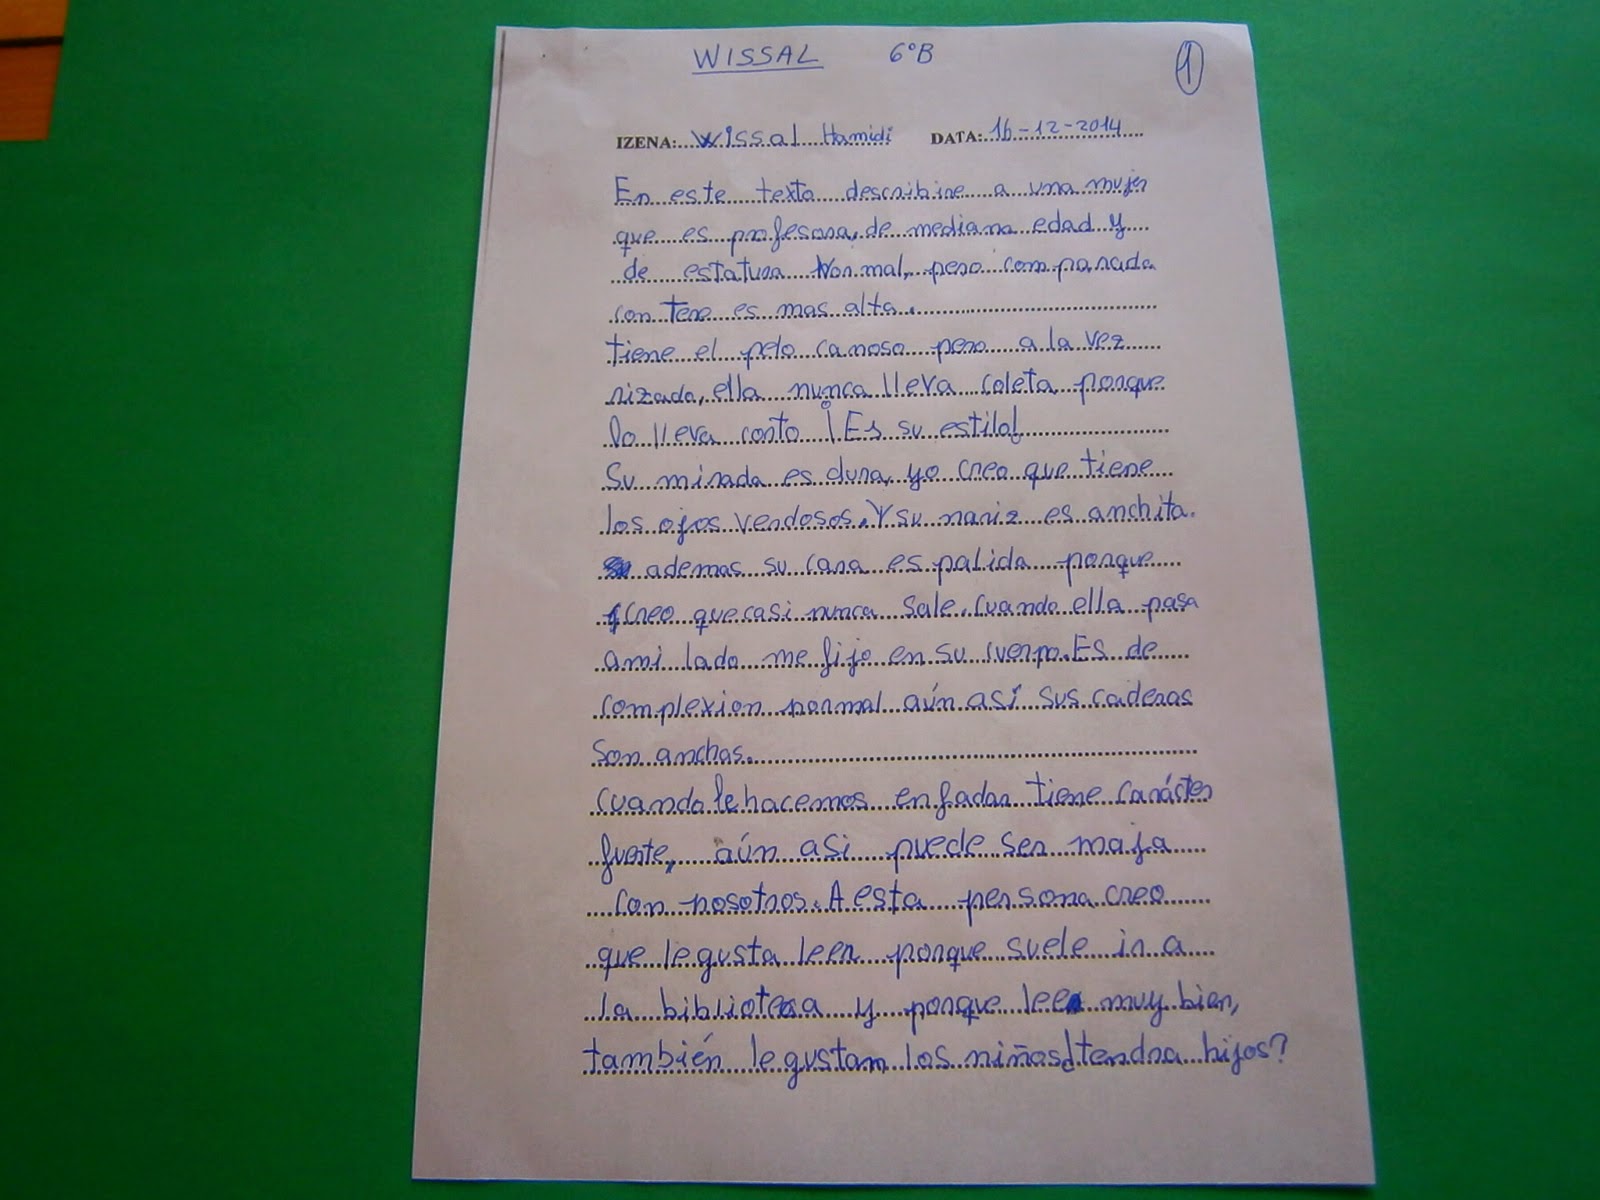 WISSAL 6ºB 1
IZENA: Wissal Hamidi DATA: 16-12-2014
En este texto describire a una mujer
que es profesora, de mediana edad y
de estatura Normal, pero comparada
con Tere es mas alta.
tiene el pelo canoso pero a la vez
rizado, ella nunca lleva coleta porque
lo lleva corto ¡Es su estilo!
Su mirada es dura, yo creo que tiene
los ojos verdosos. Y su nariz es anchita.
ademas su cara es palida porque
creo que casi nunca sale. Cuando ella pasa
ami lado me fijo en su cuerpo. Es de
complexion normal aún así sus caderas
son anchas.
cuando le hacemos enfadar tiene carácter
fuerte, aún asi puede ser maja
con nosotros. A esta persona creo
que le gusta leer porque suele ir a
la biblioteca y porque lee muy bien,
también le gustan los niños ¿tendra hijos?